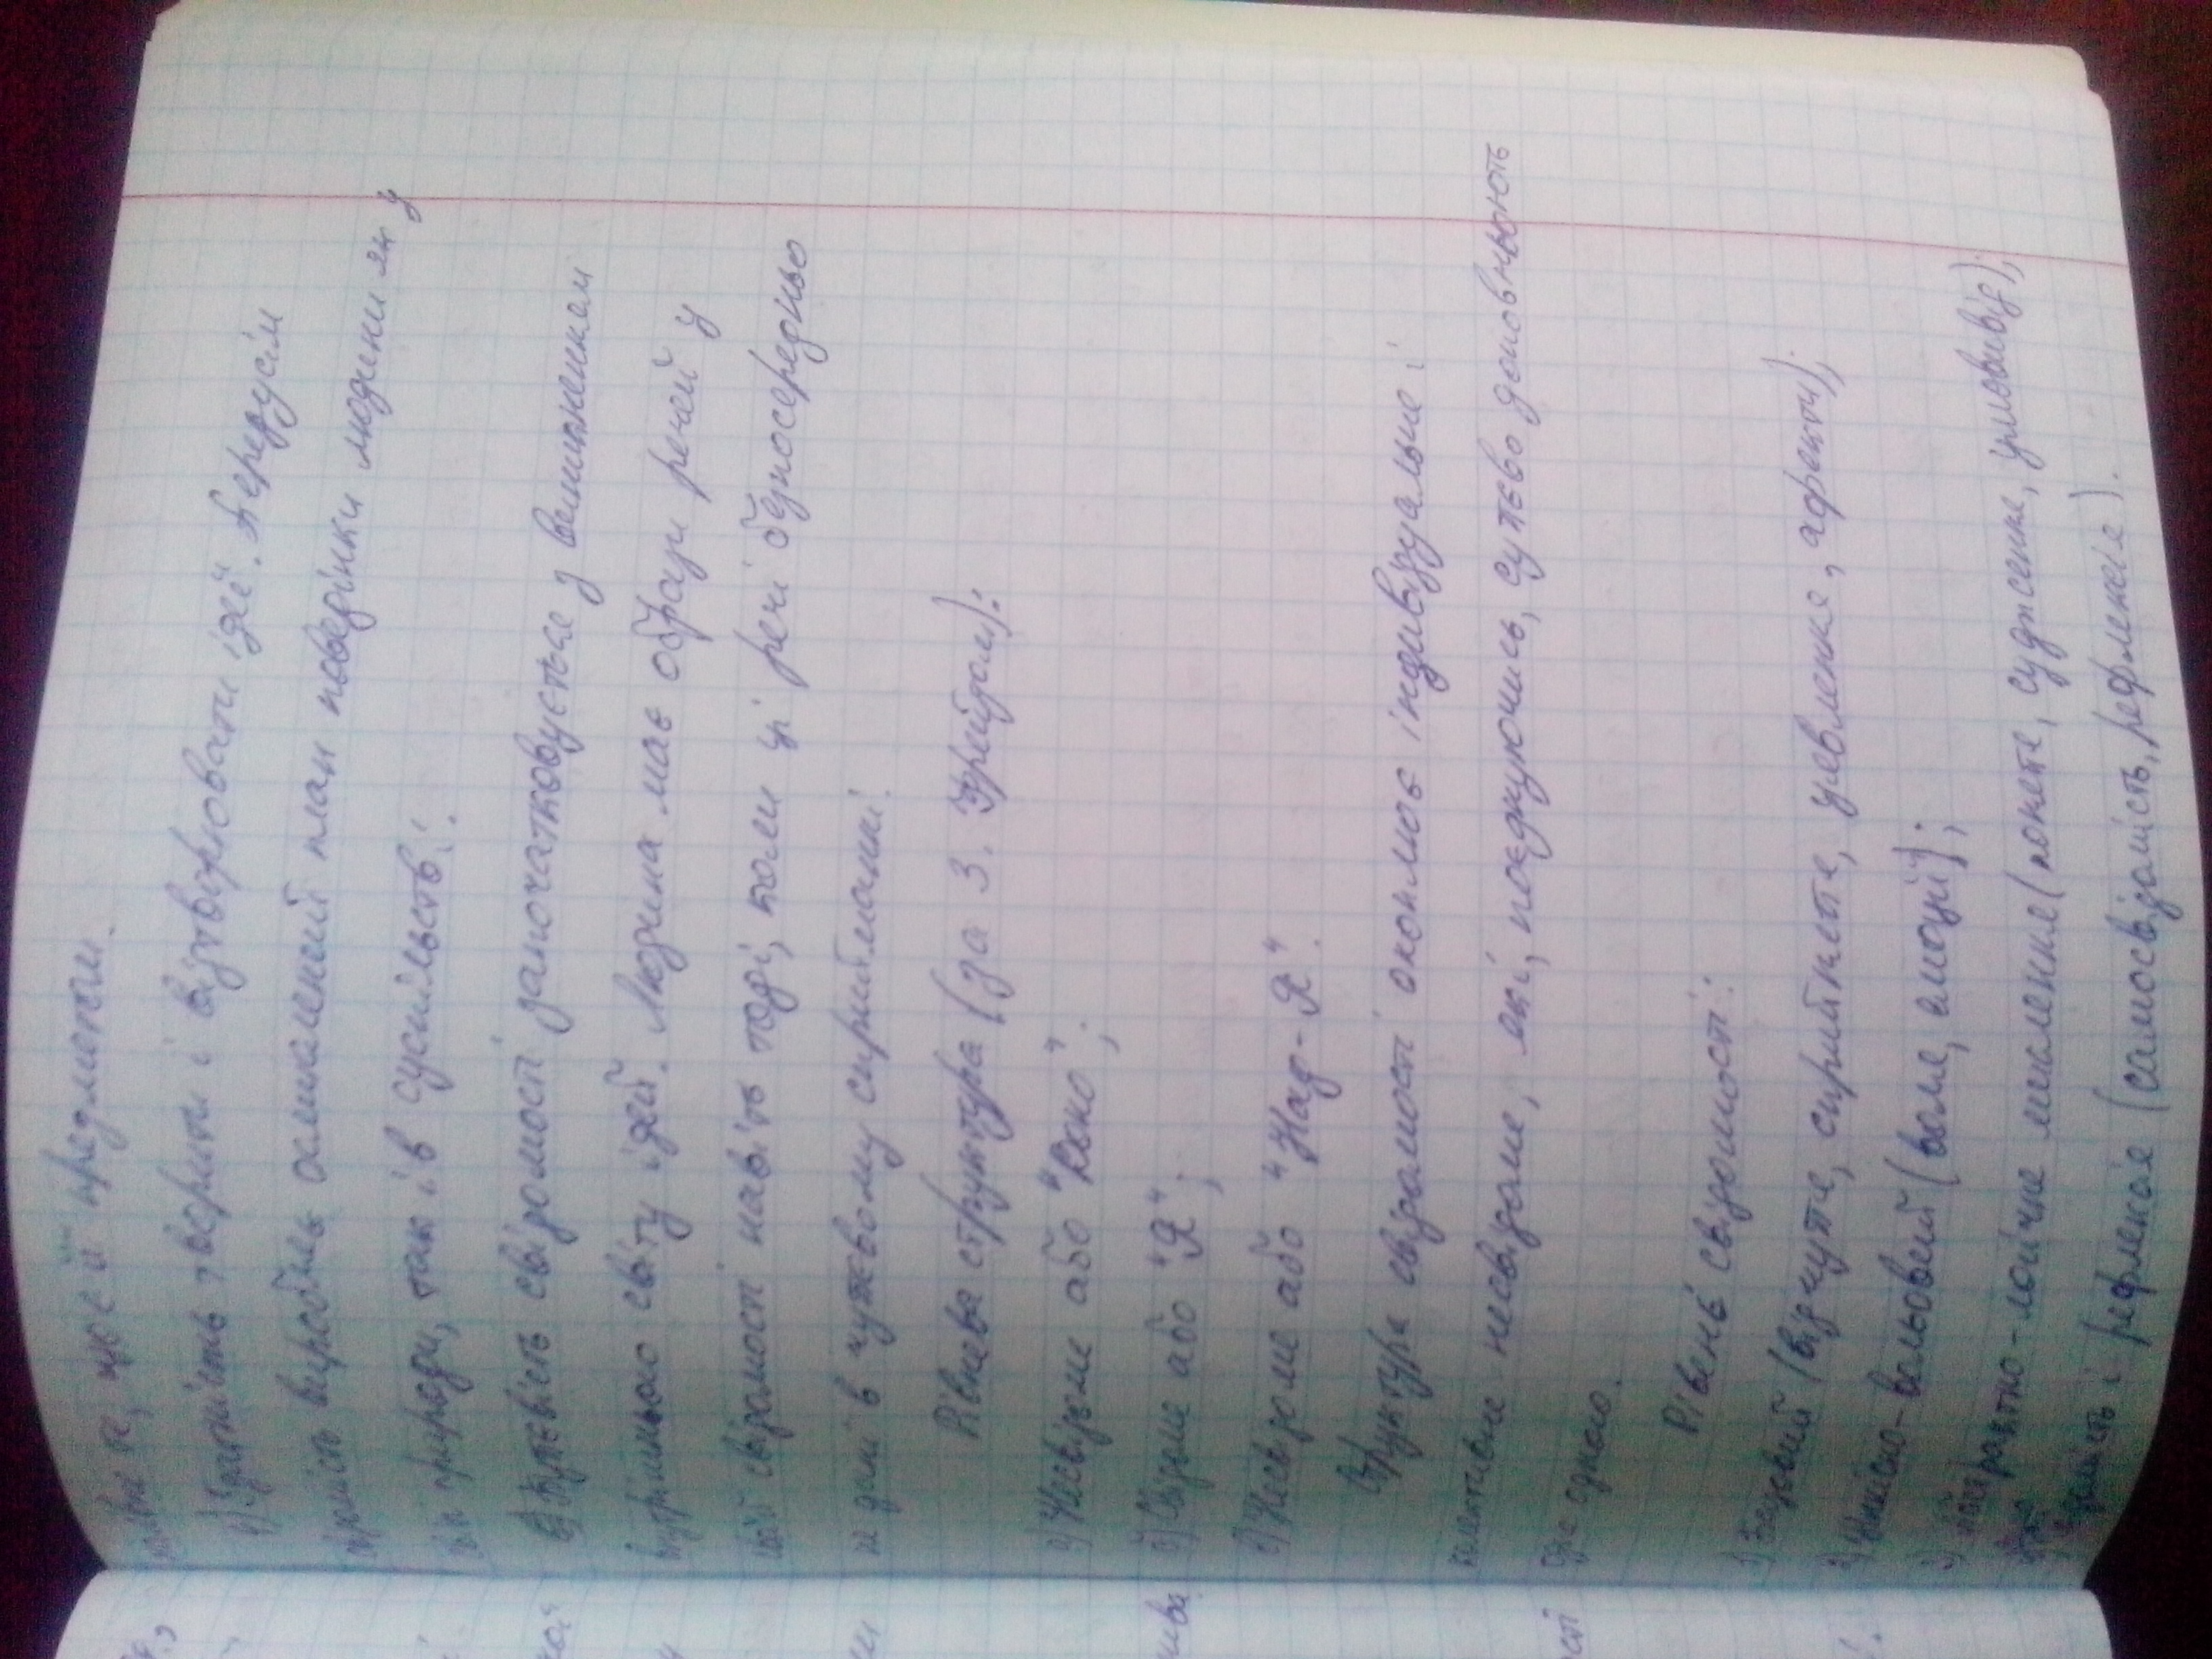 те, що є її предметом.
Здатність творити і відтворювати ідеї. Передусім
свідомість виробляє осмислений план поведінки людини як у
світі природи, так і в суспільстві.
в) Буттєвість свідомості започатковується з виникненням
внутрішнього світу ідей. Людина має образи речей у
своїй свідомості навіть тоді, коли ці речі безпосередньо
не дані в чуттєвому сприйманні.
Рівнева структура (за З. Фрейдом):
а) Несвідоме або "Воно";
б) Свідоме або "Я";
в) Несвідоме або "Над-Я".
Структура свідомості охоплює індивідуальне і
колективне несвідоме, які, поєднуючись, суттєво доповнюють
одне одного.
Рівень свідомості:
1) Базовий (відчуття, сприйняття, уявлення, афекти);
2) Ціннісно-вольовий (воля, емоції);
3) Абстрактно-логічне мислення (поняття, судження, умовивід);
і рефлексія (самосвідомість, рефлексія).